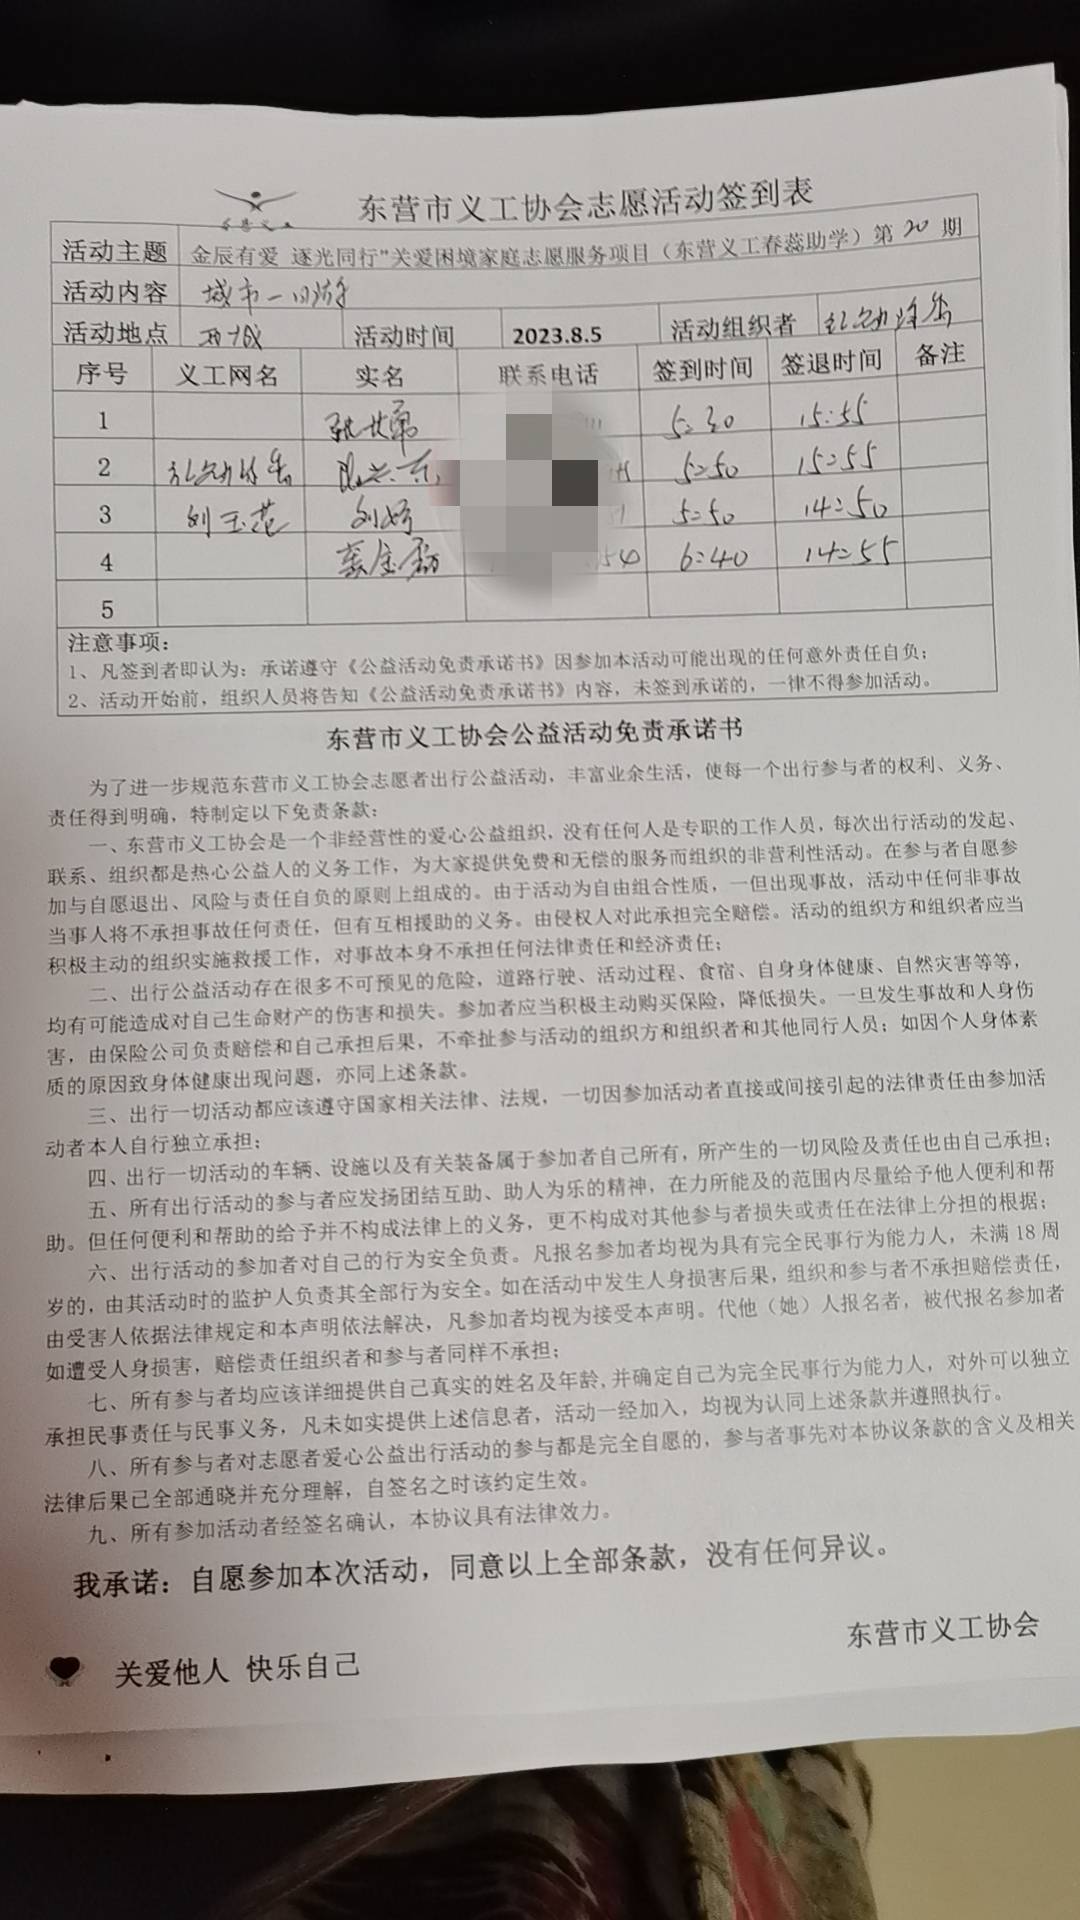 东营义工
东营市义工协会志愿活动签到表
活动主题 金辰有爱 逐光同行"关爱困境家庭志愿服务项目（东营义工春蕊助学）第 20 期
活动内容 城市一日游
活动地点 西城 活动时间 2023.8.5 活动组织者
序号 义工网名 实名 联系电话 签到时间 签退时间 备注
1 5:30 15:55
2 5:50 15:55
3 刘玉范 刘婷 5:50 14:50
4 54 6:40 14:55
5
注意事项：
1、凡签到者即认为：承诺遵守《公益活动免责承诺书》因参加本活动可能出现的任何意外责任自负；
2、活动开始前，组织人员将告知《公益活动免责承诺书》内容，未签到承诺的，一律不得参加活动。
东营市义工协会公益活动免责承诺书
为了进一步规范东营市义工协会志愿者出行公益活动，丰富业余生活，使每一个出行参与者的权利、义务、
责任得到明确，特制定以下免责条款：
一、东营市义工协会是一个非经营性的爱心公益组织，没有任何人是专职的工作人员，每次出行活动的发起、
联系、组织都是热心公益人的义务工作，为大家提供免费和无偿的服务而组织的非营利性活动。在参与者自愿参
加与自愿退出、风险与责任自负的原则上组成的。由于活动为自由组合性质，一但出现事故，活动中任何非事故
当事人将不承担事故任何责任，但有互相援助的义务。由侵权人对此承担完全赔偿。活动的组织方和组织者应当
积极主动的组织实施救援工作，对事故本身不承担任何法律责任和经济责任；
二、出行公益活动存在很多不可预见的危险，道路行驶、活动过程、食宿、自身身体健康、自然灾害等等，
均有可能造成对自己生命财产的伤害和损失。参加者应当积极主动购买保险，降低损失。一旦发生事故和人身伤
害，由保险公司负责赔偿和自己承担后果，不牵扯参与活动的组织方和组织者和其他同行人员；如因个人身体素
质的原因致身体健康出现问题，亦同上述条款。
三、出行一切活动都应该遵守国家相关法律、法规，一切因参加活动者直接或间接引起的法律责任由参加活
动者本人自行独立承担；
四、出行一切活动的车辆、设施以及有关装备属于参加者自己所有，所产生的一切风险及责任也由自己承担；
五、所有出行活动的参与者应发扬团结互助、助人为乐的精神，在力所能及的范围内尽量给予他人便利和帮
助。但任何便利和帮助的给予并不构成法律上的义务，更不构成对其他参与者损失或责任在法律上分担的根据；
六、出行活动的参加者对自己的行为安全负责。凡报名参加者均视为具有完全民事行为能力人，未满 18 周
岁的，由其活动时的监护人负责其全部行为安全。如在活动中发生人身损害后果，组织和参与者不承担赔偿责任，
由受害人依据法律规定和本声明依法解决，凡参加者均视为接受本声明。代他（她）人报名者，被代报名参加者
如遭受人身损害，赔偿责任组织者和参与者同样不承担；
七、所有参与者均应该详细提供自己真实的姓名及年龄,并确定自己为完全民事行为能力人，对外可以独立
承担民事责任与民事义务，凡未如实提供上述信息者，活动一经加入，均视为认同上述条款并遵照执行。
八、所有参与者对志愿者爱心公益出行活动的参与都是完全自愿的，参与者事先对本协议条款的含义及相关
法律后果已全部通晓并充分理解，自签名之时该约定生效。
九、所有参加活动者经签名确认，本协议具有法律效力。
我承诺：自愿参加本次活动，同意以上全部条款，没有任何异议。
东营市义工协会
关爱他人 快乐自己